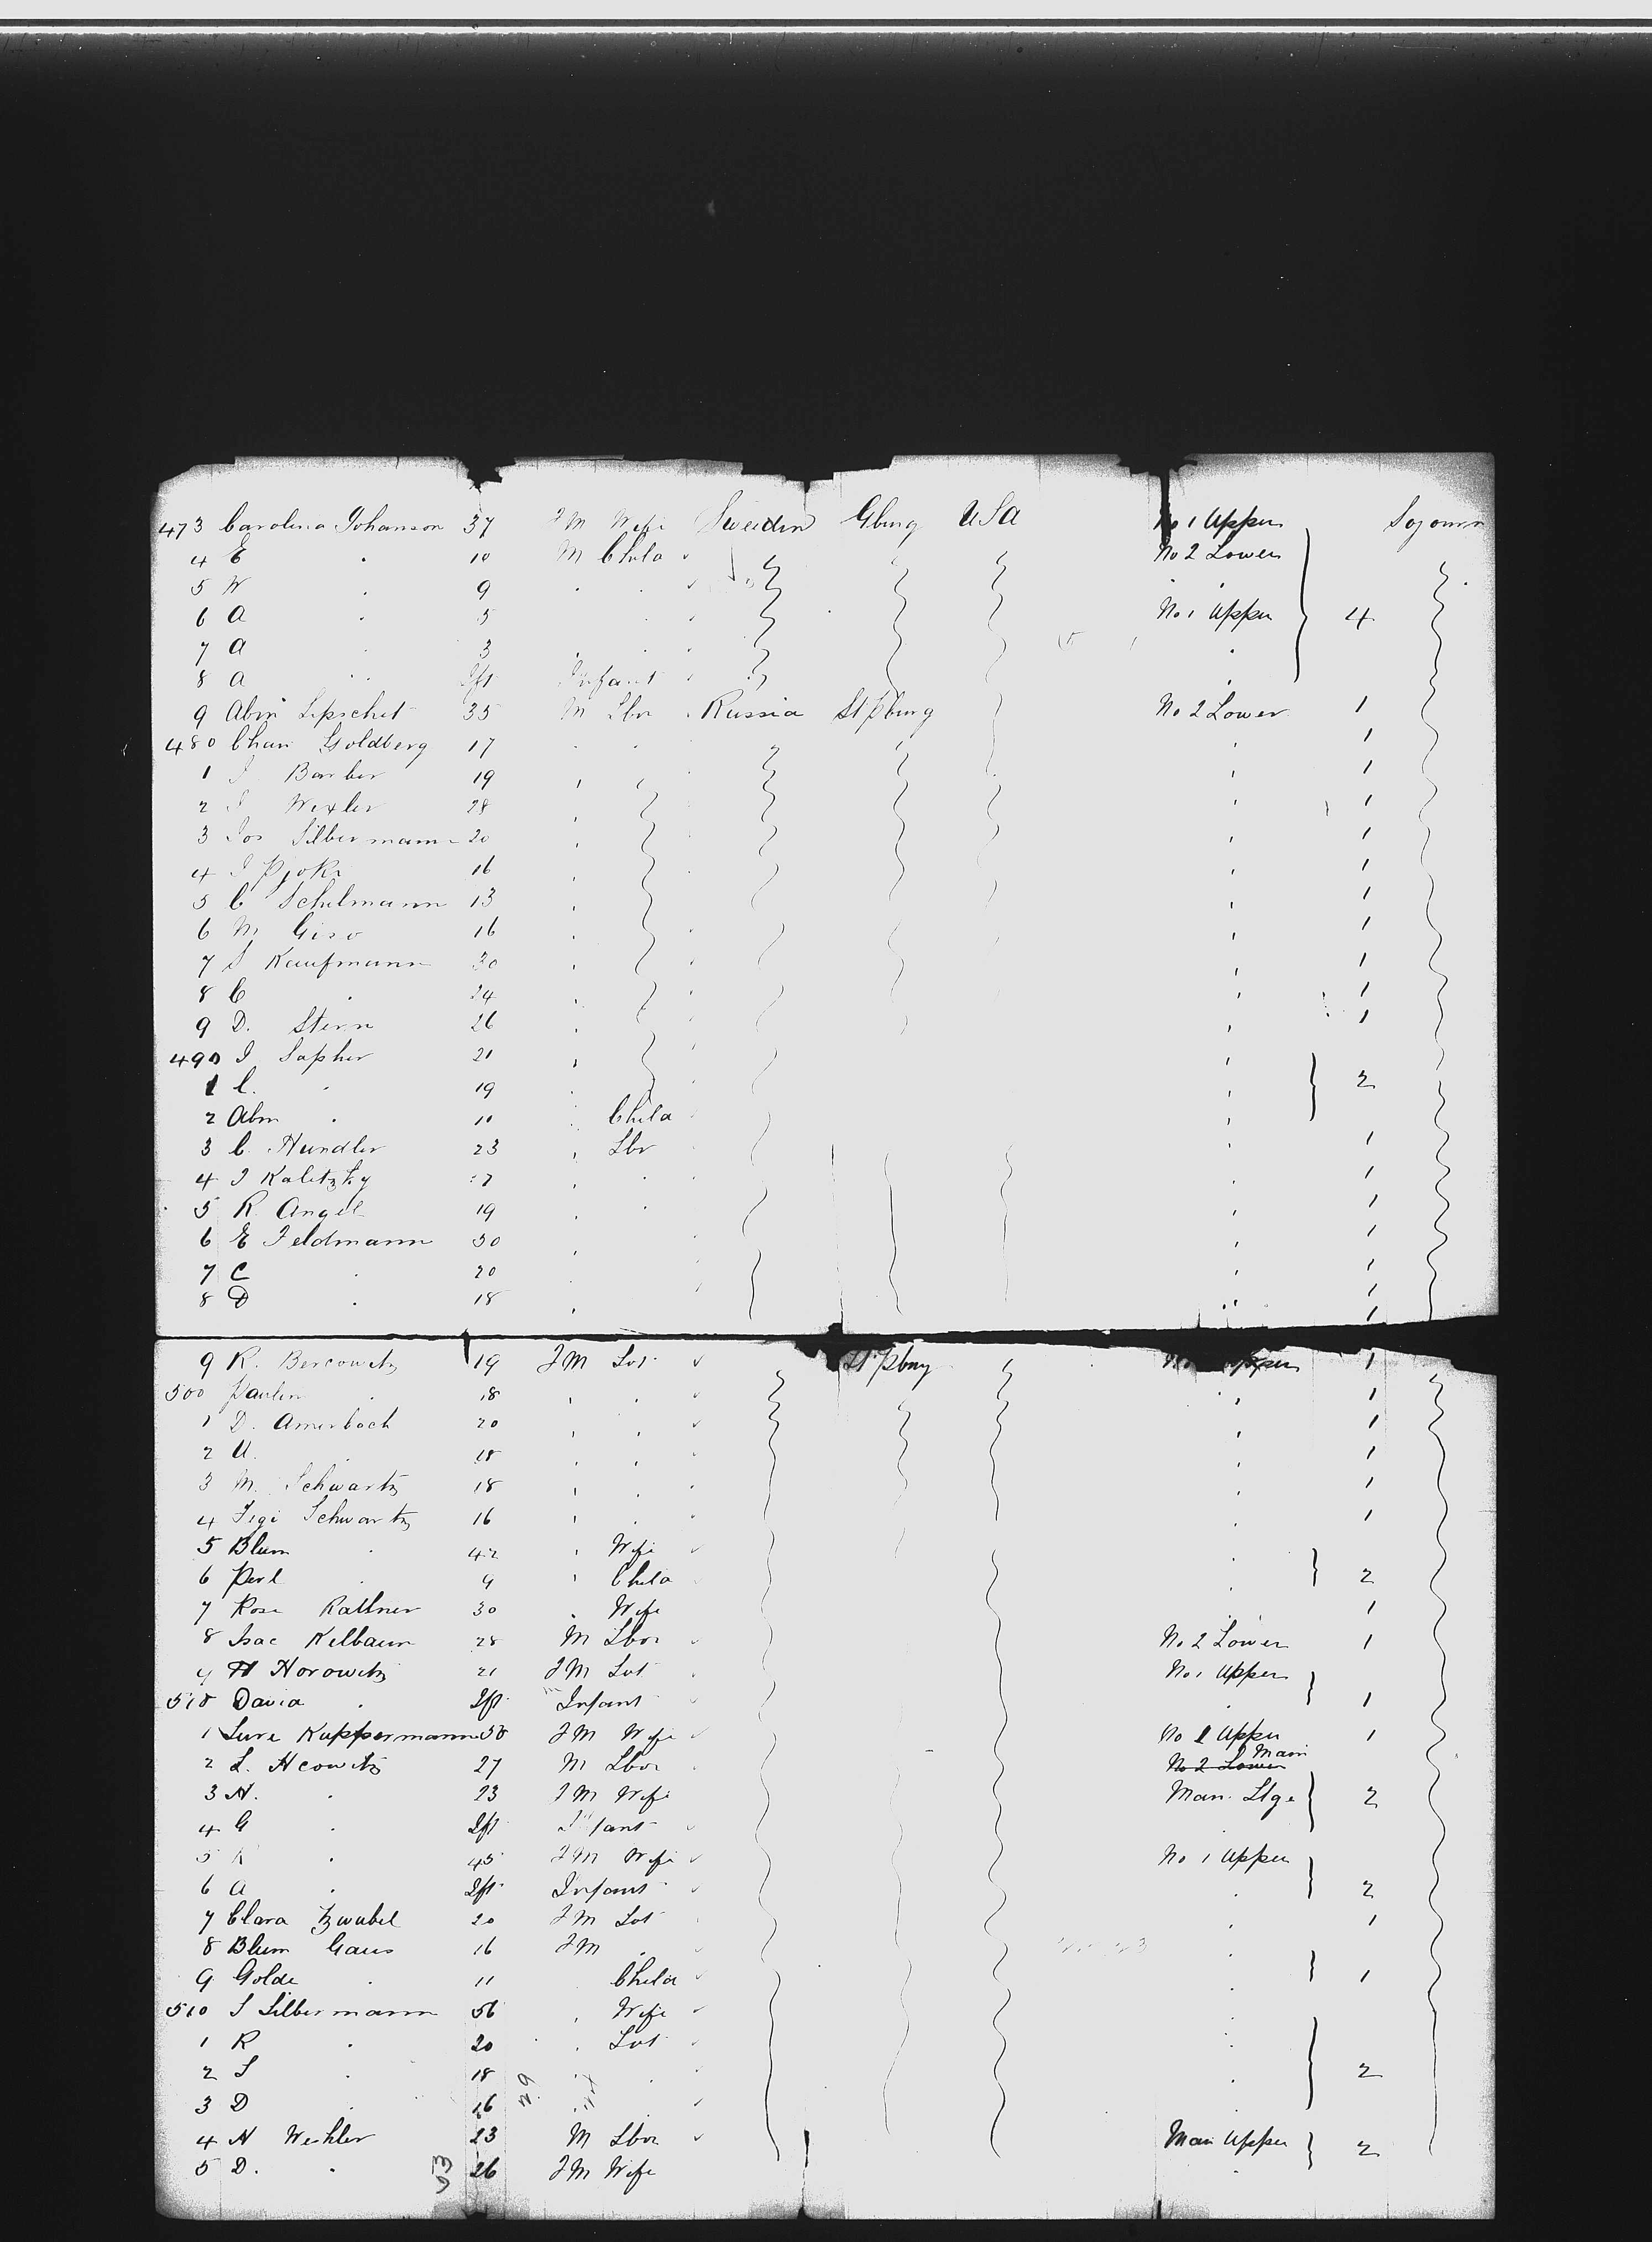 473 Carolina Johanson 37 FM Wife Sweeden Gburg USA No 1 Upper Sojourn
4 E " 10 M Child No 2 Lower
5 W " 9 " " "
6 A " 5 " No 1 Upper 4
7 A " 3 " " "
8 A " Ift Infant "
9 Abm Lipschet 35 M Lbr Russia St Pburg No 2 Lower 1
480 Chan Goldberg 17 " " " 1
1 Barber 19 " " 1
2 Wexler 28 " " 1
3 Jos Silbermann 20 " " 1
4 16 " " 1
5 C Schulmann 13 " " 1
6 M Giso 16 " " 1
7 S Kaufmann 30 " " 1
8 C " 24 " " 1
9 D. Stern 26 " " 1
490 I Sapher 21 " "
1 C. " 19 " " 2
2 Abm " 10 " Child "
3 C. Handler 23 " Lbr " 1
4 I Kaletzky " " " 1
5 R Angel 19 " " " 1
6 E Feldmann 30 " " 1
7 C " 20 " " 1
8 D " 18 " " 1
1
9 R. Bercowitz 19 FM Svt St Pburg Upper 1
500 Paulin " 18 " " " 1
1 D. Amerbach 20 " " " 1
2 U. " 18 " " " 1
3 M. Schwartz 18 " " " 1
4 Figi Schwartz 16 " " " 1
5 Blum " 42 " Wife "
6 Perl " 9 " Child " 2
7 Rosa Rattner 30 " Wife " 1
8 Isac Kelbaum 28 M Lbor No 2 Lower 1
9 H Horowitz 21 FM Svt No 1 Upper
510 David " Ift Infant " 1
1 Sure Kuppermann 50 FM Wife No 1 Upper 1
2 L. Hcowitz 27 M Lbor No 2 Lower Main
3 H. " 23 FM Wife Main Stge 2
4 G " Ift Infant "
5 " 45 FM Wife No 1 Upper
6 A " Ift Infant " 2
7 Clara Zwubel 20 FM Svt " 1
8 Blum Gaus 16 FM " "
9 Golde " 11 Child " 1
510 S Silbermann 56 " Wife "
1 R " 20 " Svt "
2 S " 18 " " " 2
3 D " 16 " "
4 H Wechler 23 M Lbor Main Upper 2
5 D. " 26 FM Wife "